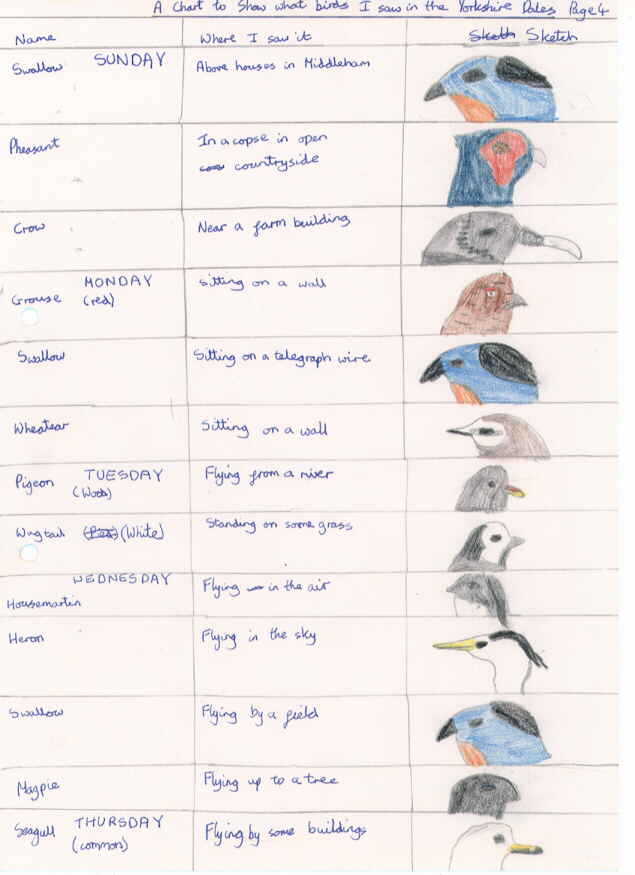 A Chart to show what birds I saw in the Yorkshire Dales Page 4
Name Where I saw it Sketch Sketch
Swallow SUNDAY Above houses in Middleham
Pheasant In a copse in open
countryside
Crow Near a farm building
MONDAY sitting on a wall
Grouse (red)
Swallow Sitting on a telegraph wire
Wheatear Sitting on a wall
Pigeon TUESDAY Flying from a river
(Wood)
Wagtail (White) Standing on some grass
WEDNESDAY Flying in the air
Housemartin
Heron Flying in the sky
Swallow Flying by a field
Magpie Flying up to a tree
Seagull THURSDAY Flying by some buildings
(common)